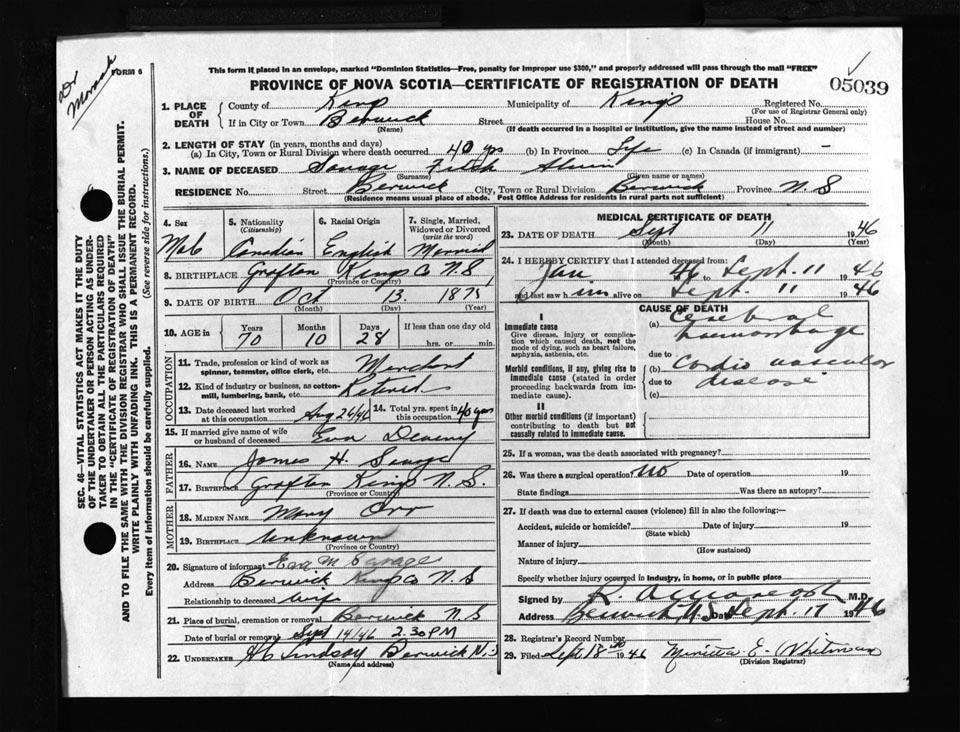 Dr
FORM 6
This form if placed in an envelope, marked "Dominion Statistics—Free, penalty for improper use $300," and properly addressed will pass through the mail "FREE"
PROVINCE OF NOVA SCOTIA—CERTIFICATE OF REGISTRATION OF DEATH
05039
SEC. 46—VITAL STATISTICS ACT MAKES IT THE DUTY
OF THE UNDERTAKER OR PERSON ACTING AS UNDER-
TAKER TO OBTAIN ALL THE PARTICULARS REQUIRED
IN THE "CERTIFICATE OF REGISTRATION OF DEATH"
AND TO FILE THE SAME WITH THE DIVISION REGISTRAR WHO SHALL ISSUE THE BURIAL PERMIT.
WRITE PLAINLY WITH UNFADING INK. THIS IS A PERMANENT RECORD.
Every item of information should be carefully supplied. (See reverse side for instructions.)
1. PLACE OF DEATH
County of Kings Municipality of Kings Registered No.
(For use of Registrar General only)
If in City or Town Berwick Street House No.
(Name) (If death occurred in a hospital or institution, give the name instead of street and number)
2. LENGTH OF STAY (in years, months and days)
(a) In City, Town or Rural Division where death occurred 40 yrs (b) In Province Life (c) In Canada (if immigrant) —
3. NAME OF DECEASED Savage Fitch Alvin
(Surname) (Given name or names)
RESIDENCE No. Street Berwick City, Town or Rural Division Berwick Province N. S
(Residence means usual place of abode. Post Office Address for residents in rural parts not sufficient)
4. Sex
Male
5. Nationality
(Citizenship)
Canadian
6. Racial Origin
English
7. Single, Married, Widowed or Divorced
(write the word)
Married
8. BIRTHPLACE Grafton Kings Co N.S
(Province or Country)
9. DATE OF BIRTH Oct 13. 1875
(Month) (Day) (Year)
10. AGE in Years Months Days If less than one day old
70 10 28 hrs. or min.
OCCUPATION
11. Trade, profession or kind of work as spinner, teamster, office clerk, etc. Merchant
12. Kind of industry or business, as cotton-mill, lumbering, bank, etc. Retired
13. Date deceased last worked at this occupation Aug 26/46 14. Total yrs. spent in this occupation 40 yrs
15. If married give name of wife or husband of deceased Eva
FATHER
16. NAME James H. Savage
17. BIRTHPLACE Grafton Kings N. S.
(Province or Country)
MOTHER
18. MAIDEN NAME Mary Orr
19. BIRTHPLACE Unknown
(Province or Country)
20. Signature of informant Eva M Savage
Address Berwick Kings Co N. S
Relationship to deceased wife
21. Place of burial, cremation or removal Berwick N.S
Date of burial or removal Sept 14/46 2.30 PM
22. UNDERTAKER Lindsay Berwick N.S
(Name and address)
MEDICAL CERTIFICATE OF DEATH
23. DATE OF DEATH Sept 11 1946
(Month) (Day) (Year)
24. I HEREBY CERTIFY that I attended deceased from:
Jan 46 to Sept. 11 1946
and last saw him alive on Sept. 11 1946
CAUSE OF DEATH
I
Immediate cause
Give disease, injury or complication which caused death, not the mode of dying, such as heart failure, asphyxia, asthenia, etc.
(a) Cerebral haemorrhage
due to
Morbid conditions, if any, giving rise to immediate cause (stated in order proceeding backwards from immediate cause).
(b) Cardio vascular disease
due to
(c)
II
Other morbid conditions (if important) contributing to death but not causally related to immediate cause.
25. If a woman, was the death associated with pregnancy?
26. Was there a surgical operation? no Date of operation 19
State findings Was there an autopsy?
27. If death was due to external causes (violence) fill in also the following:—
Accident, suicide or homicide? Date of injury 19
(State which)
Manner of injury
(How sustained)
Nature of injury
Specify whether injury occurred in industry, in home, or in public place
Signed by M.D.
Address Berwick N.S Date Sept. 17 1946
28. Registrar's Record Number
29. Filed Sept 18th 1946 E. Whitman
(Division Registrar)